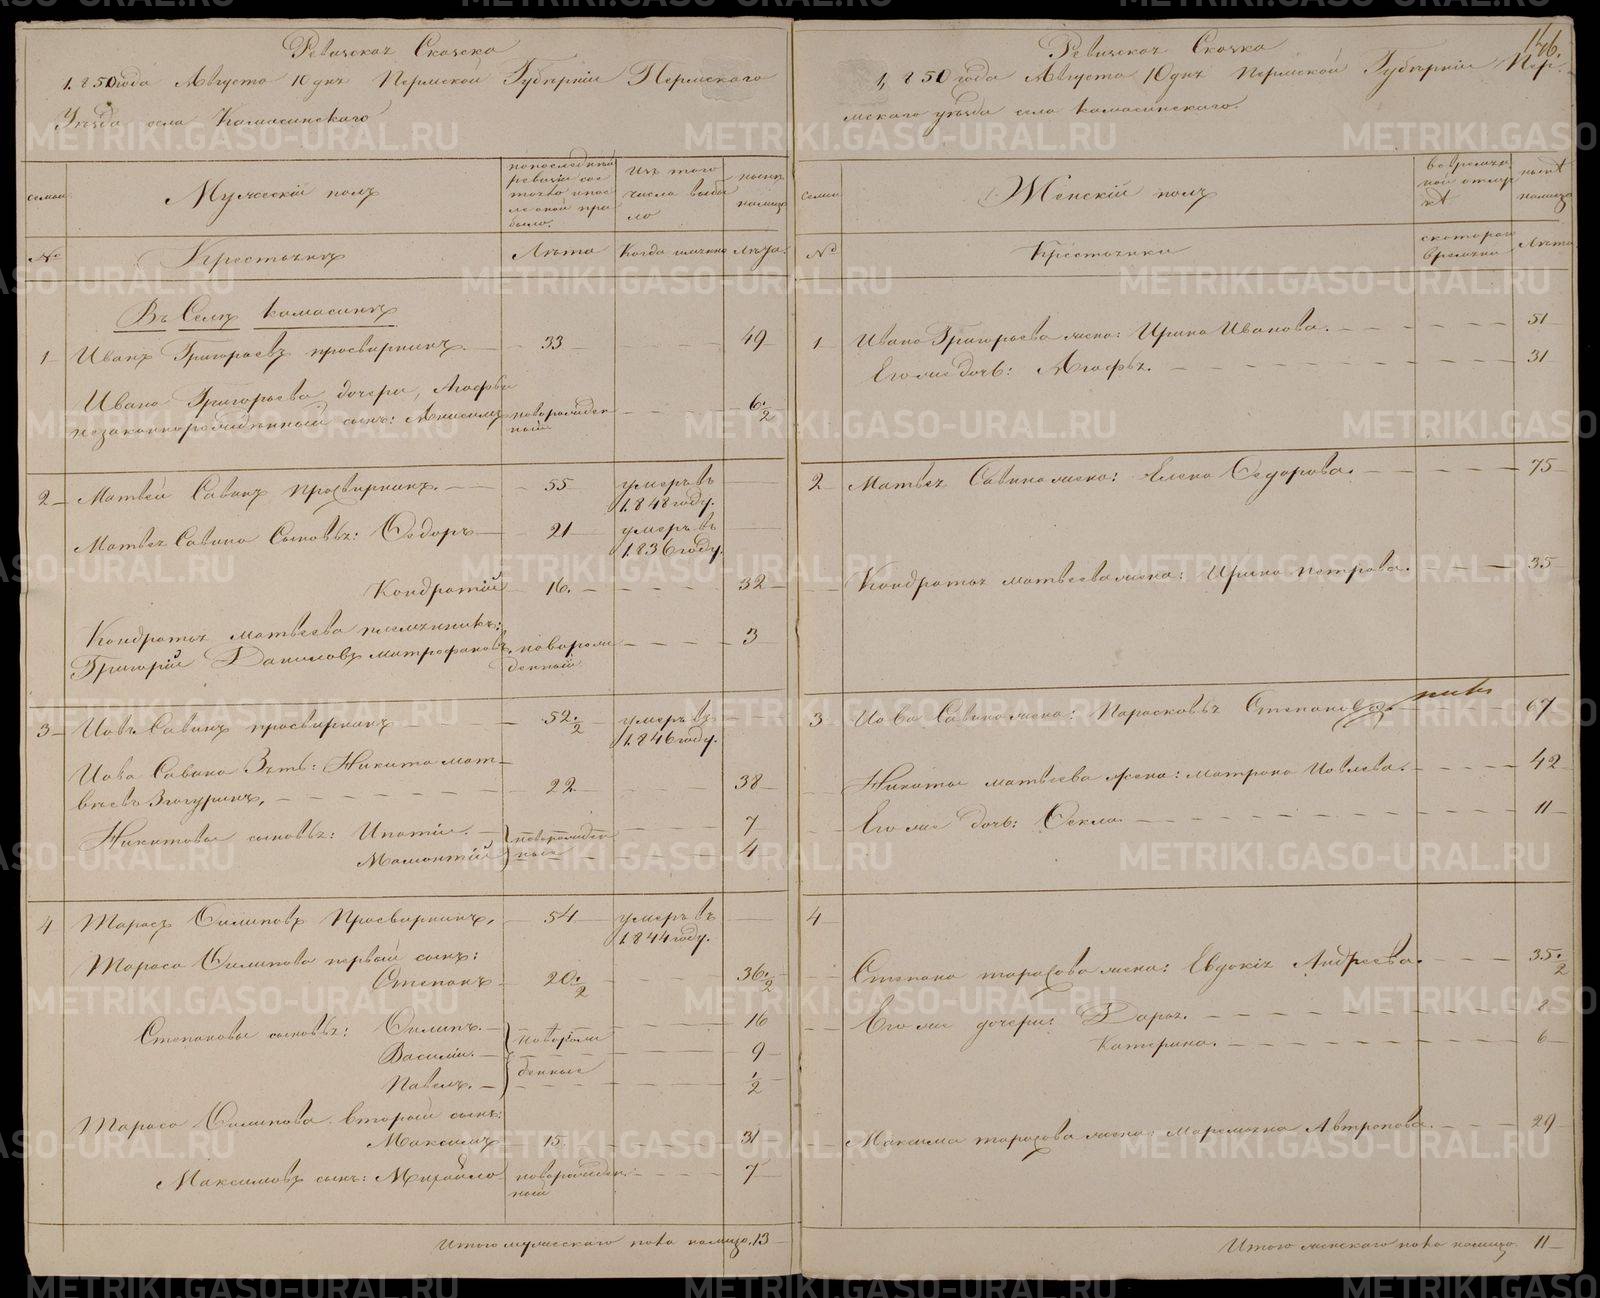 Ревизская Сказка
1850 года Августа 10 дня Пермской Губернiи Пермскаго
Уѣзда села Камасинскаго
семьи
Мужескiй полъ
по последней ревизiи состояло и после оной прибыло.
Изъ того числа выбыло
ныне налицо
№
Крестьянъ
Лѣта
Когда именно
Лѣта.
Въ Селѣ Камасинѣ
1 Иванъ Григорьевъ просвирнинъ. 33 49
Ивана Григорьева дочери, Агафьи
незаконнорожденный сынъ: Анисимъ новорожденный 6 ½
2 Матвей Савинъ Просвирнинъ. 55 умеръ въ 1848 году.
Матвея Савина Сыновья: Ѳедоръ 21 умеръ въ 1836 году.
Кондратiй 16. 32
Кондратья матвеева племянникъ:
Григорiй Даниловъ митрофановъ. новорожденный 3
3 Иовъ Савинъ просвирнинъ 52 ½ умеръ въ 1846 году.
Иова Савина Зять: Никита мат-
вѣевъ 22 38
Никитовы сыновья: Ипатiй. новорожденные 7
Мамонтiй 4
4 Тарасъ Филиповъ Просвирнинъ, 54 умеръ въ 1844 году.
Тараса Филипова первый сынъ:
Степанъ 20 ½ 36 ½
Степановы сыновья: Филипъ. новорожденные 16
Василiй. 9
Павелъ. ½
Тараса Филипова второй сынъ:
Максимъ 15. 31
Максимовъ сынъ: Михайло новорожденный 7
Итого мужескаго пола налицо. 13
146.
Ревизская Сказка
1850 года Августа 10 дня Пермской Губернiи Пер-
мскаго уѣзда села камасинскаго.
Семьи
Женскiй полъ
во временной отлучкѣ
ныне налицо
№
Крестьянки
с котораго времяни
Лѣта
1 Ивана Григорьева жена: Ирина Иванова. 51
Его же дочь: Агафья. 31
2 Матвея Савина жена: Алена Ѳедорова. 75
Кондратья матвеева жена: Ирина петрова. 35
3 Иова Савина жена: Парасковья Степанова. 67
Никиты матвеева жена: матрона Иовлева. 42
Его же дочь: Ѳекла. 11
4
Степана тарасова жена: Евдокiя Андреева. 35 ½
Его же дочери: Дарья.
Катерина. 6
Максима тарасова жена: маремьяна Автропова. 29
Итого женскаго пола налицо 11
METRIKI.GASO-URAL.RU